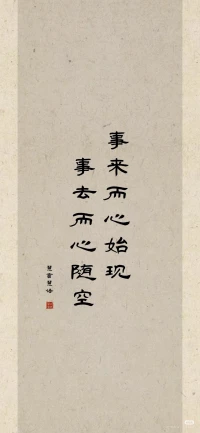 事来而心始现
事去而心随空